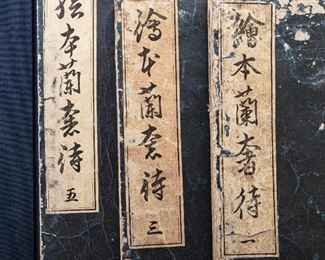 繪本蘭奢待 一
繪本蘭奢待 三
絵本蘭奢待 五